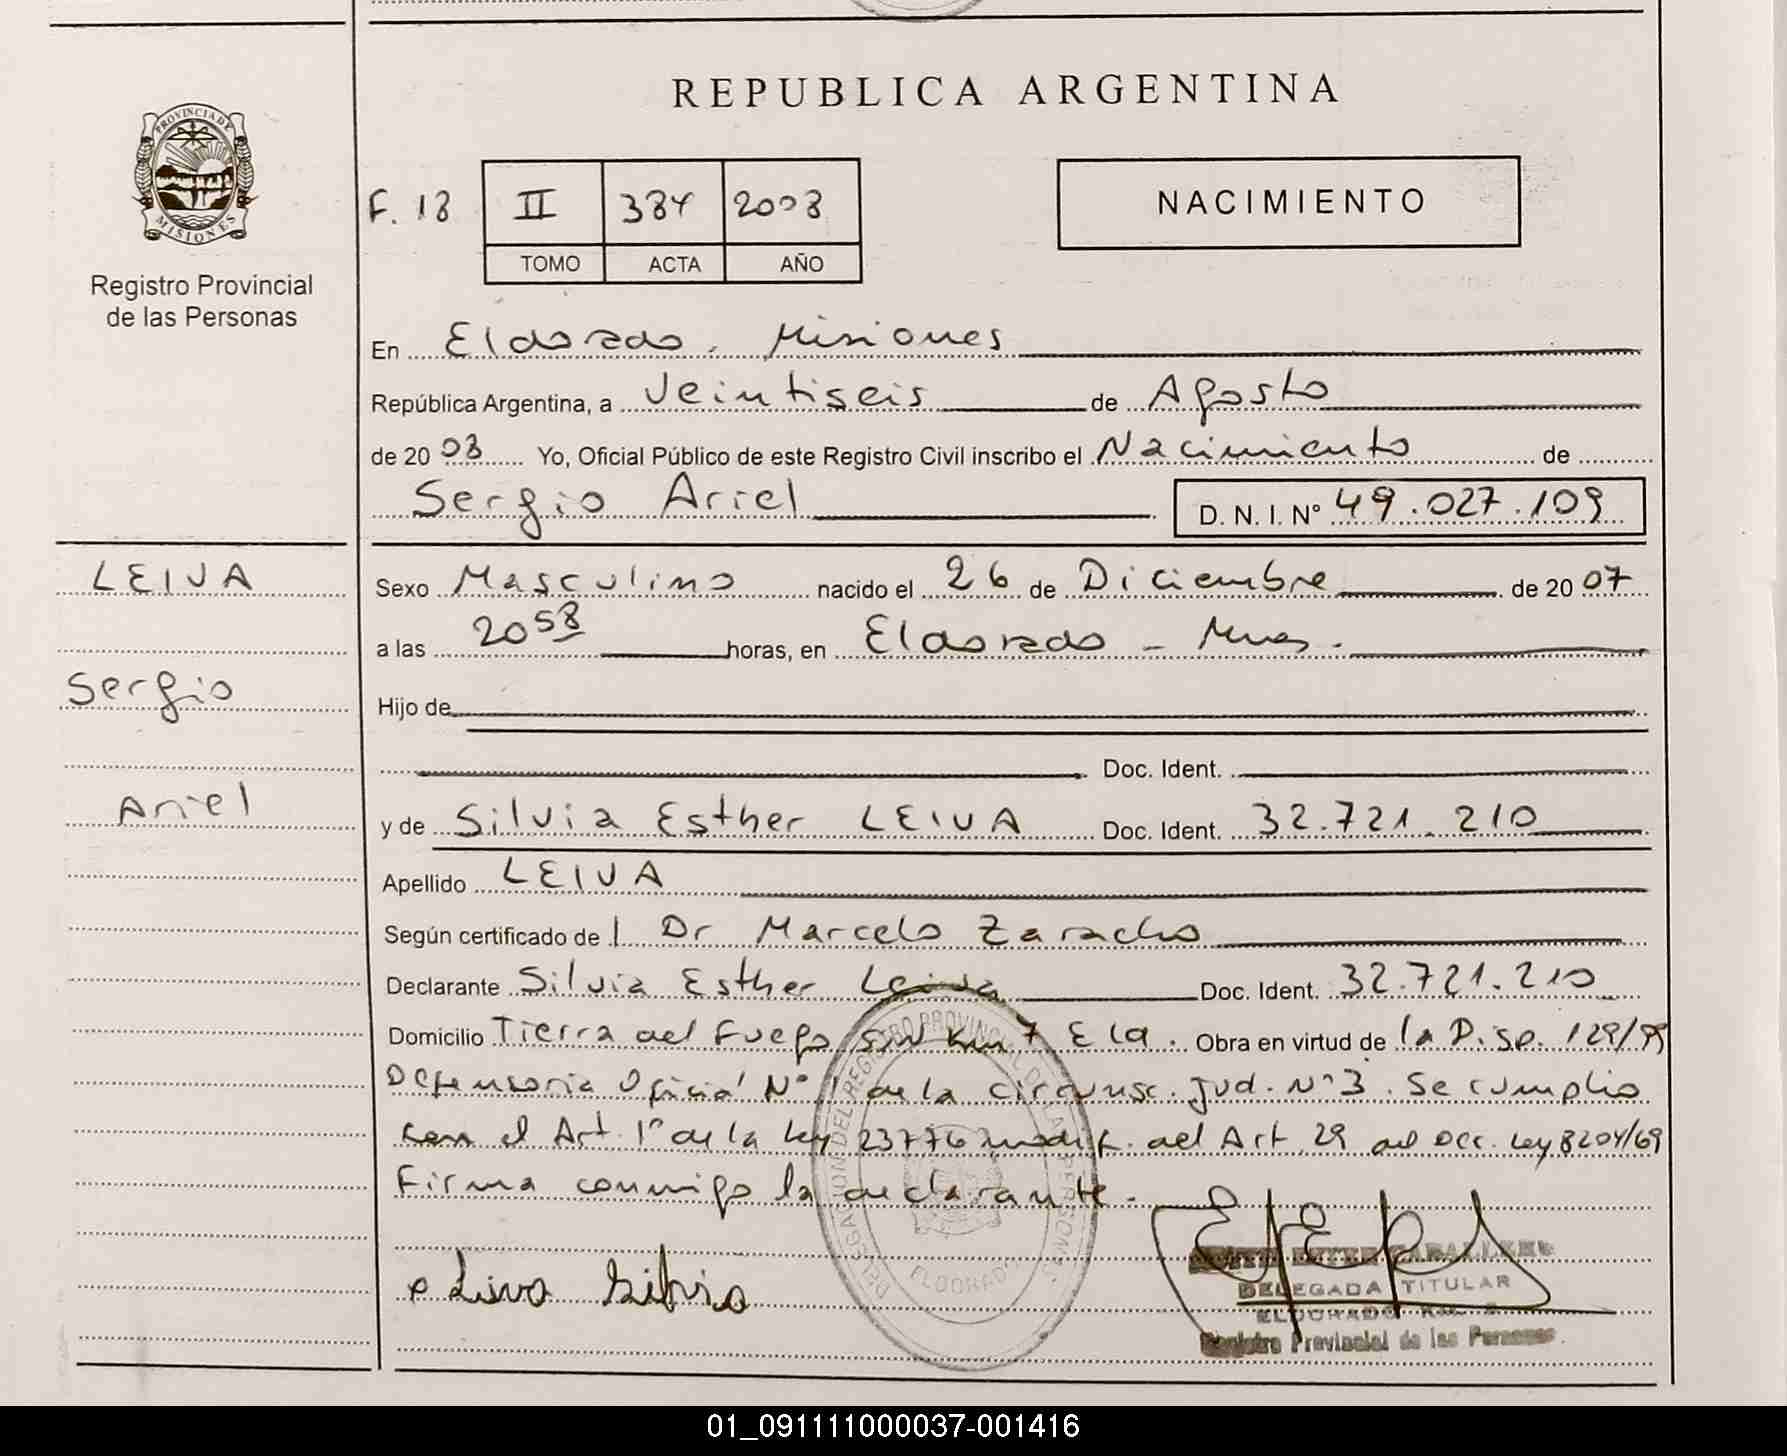 REPUBLICA ARGENTINA
PROVINCIA DE
MISIONES
Registro Provincial
de las Personas
F. 18 II 384 2008
TOMO ACTA AÑO
NACIMIENTO
En Eldorado, Misiones
República Argentina, a Veintiseis de Agosto
de 20 08 Yo, Oficial Público de este Registro Civil inscribo el Nacimiento de
Sergio Ariel D. N. I. N° 49.027.109
LEIVA
Sergio
Ariel
Sexo Masculino nacido el 26 de Diciembre de 20 07
a las 20 58 horas, en Eldorado - Mnes.
Hijo de
Doc. Ident.
y de Silvia Esther LEIVA Doc. Ident. 32.721.210
Apellido LEIVA
Según certificado de l Dr Marcelo Zaracho
Declarante Silvia Esther Leiva Doc. Ident. 32.721.210
Domicilio Tierra del Fuego S/N Km 7 Eld. Obra en virtud de la Disp. 129/99
Defensoria Oficial N° 1 de la circunsc. Jud. N° 3. Se cumplio
con el Art. 1° de la Ley 23776 modif. del Art. 29 del Dec. Ley 8204/69
Firma conmigo la declarante.
Leiva Silvia
DELEGACION DEL REGISTRO PROVINCIAL DE LAS PERSONAS
ELDORADO
DELEGADA TITULAR
ELDORADO KM.
Registro Provincial de las Personas
01_091111000037-001416